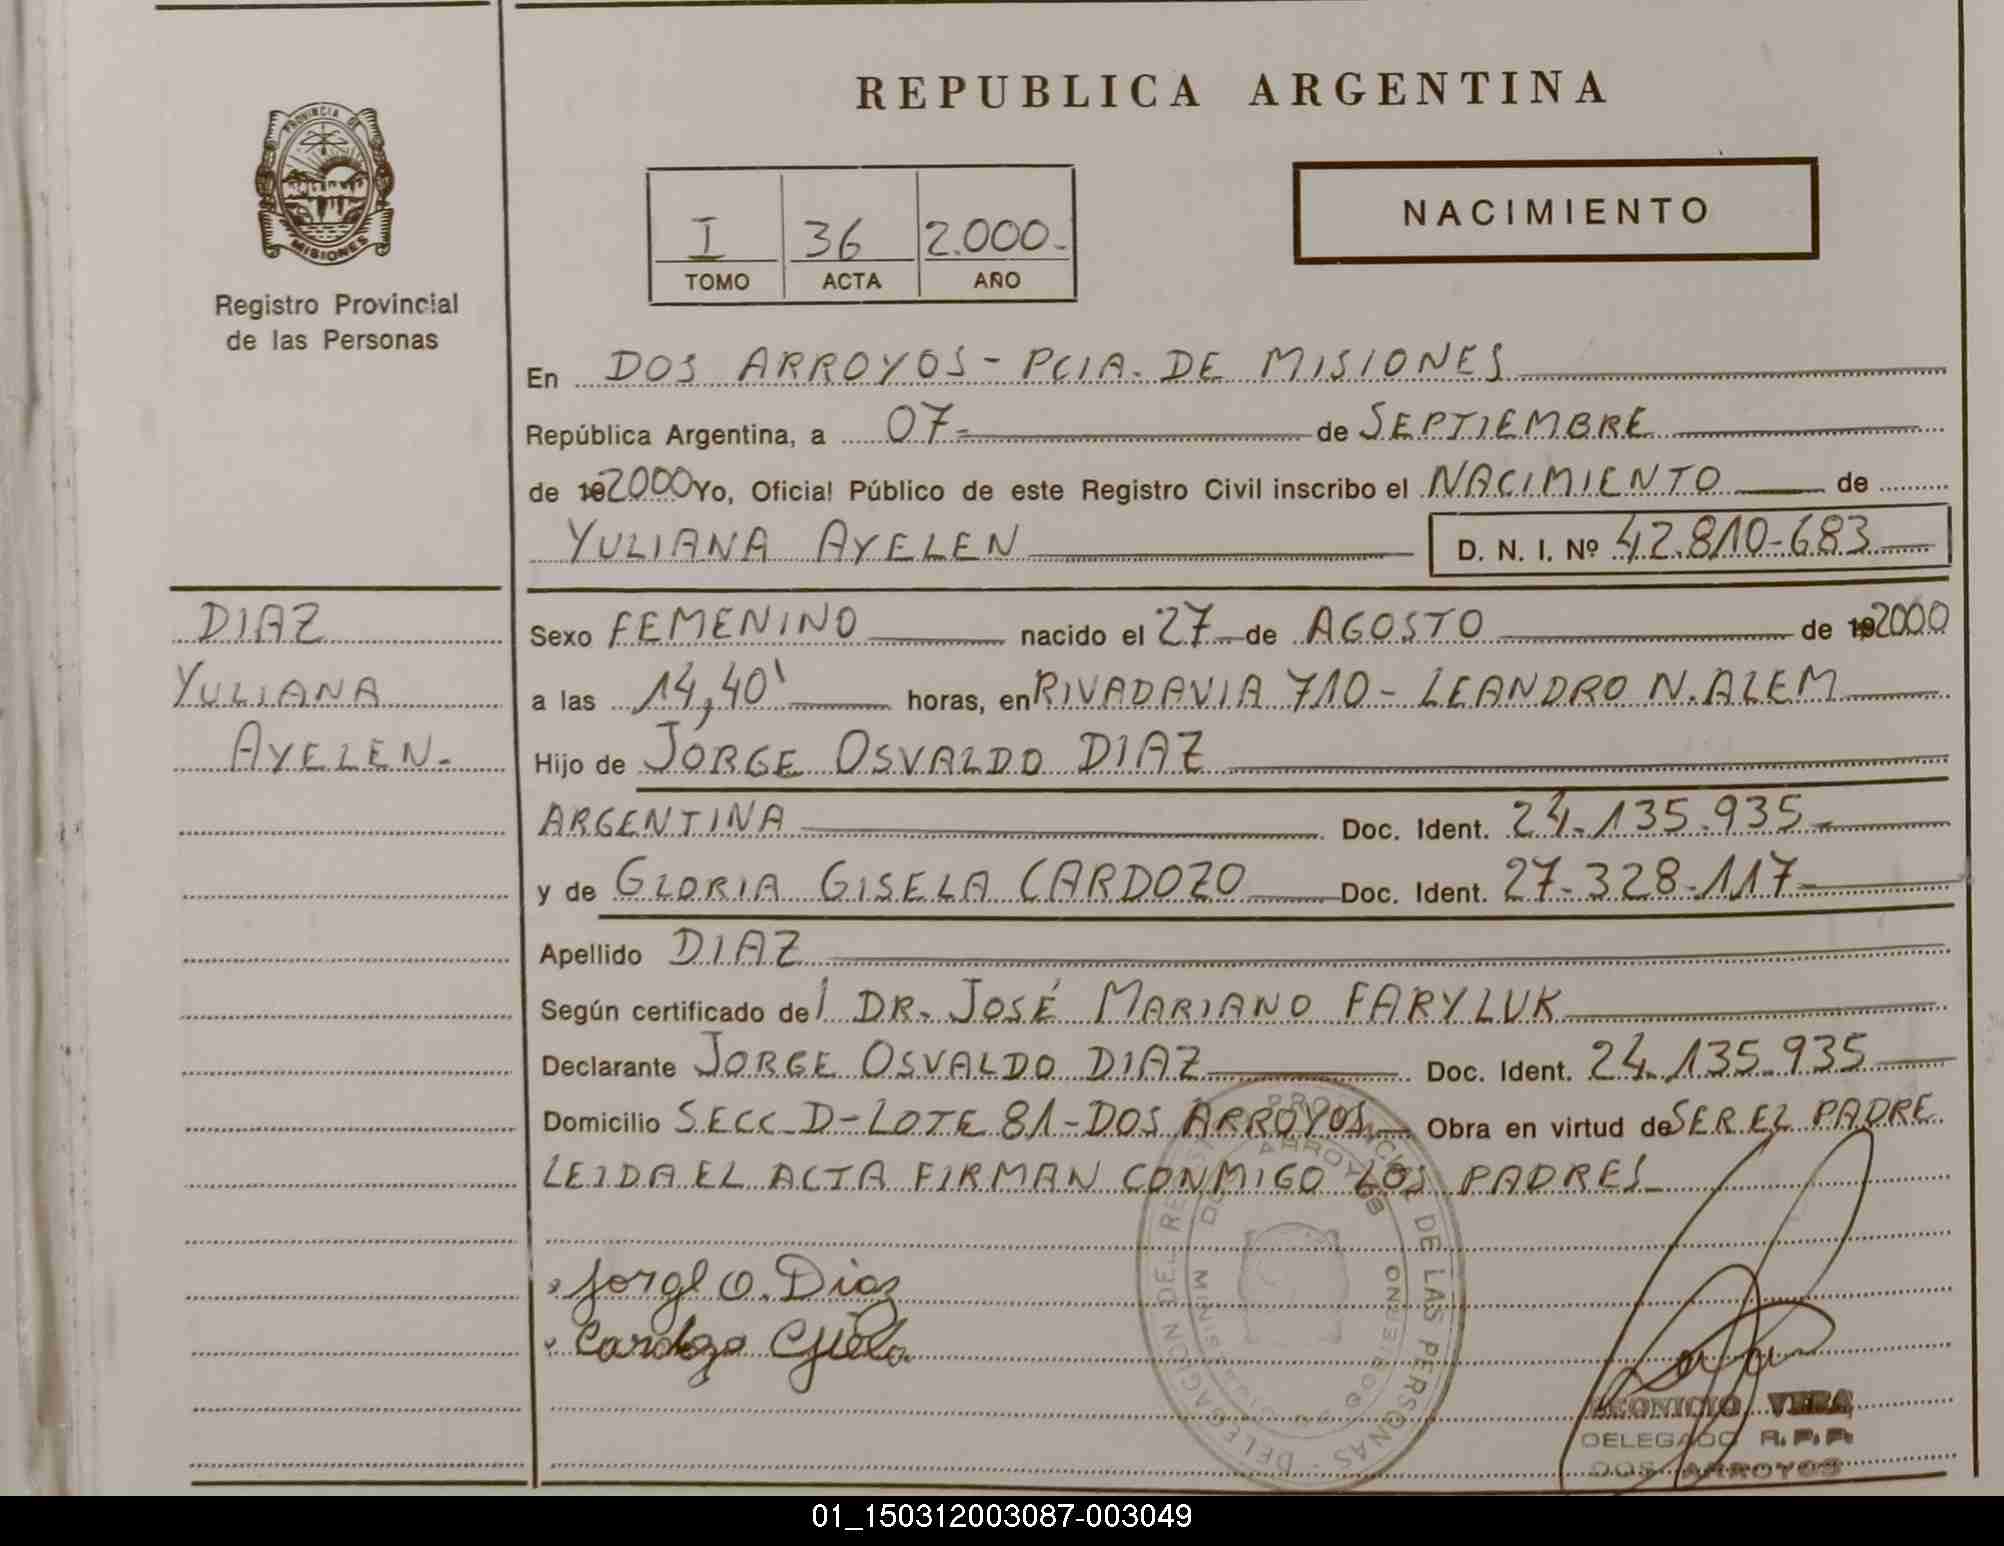 REPUBLICA ARGENTINA
PROVINCIA DE
MISIONES
Registro Provincial
de las Personas
I 36 2.000-
TOMO ACTA AÑO
NACIMIENTO
En DOS ARROYOS - PCIA. DE MISIONES
República Argentina, a 07- de SEPTIEMBRE
de 192000 Yo, Oficial Público de este Registro Civil inscribo el NACIMIENTO de
YULIANA AYELEN D. N. I. Nº 42.810-683
DIAZ
YULIANA
AYELEN-
Sexo FEMENINO nacido el 27 de AGOSTO de 192000
a las 14,40' horas, en RIVADAVIA 710 - LEANDRO N. ALEM
Hijo de JORGE OSVALDO DIAZ
ARGENTINA Doc. Ident. 24.135.935-
y de GLORIA GISELA CARDOZO Doc. Ident. 27-328-117-
Apellido DIAZ
Según certificado del DR. JOSÉ MARIANO FARYLUK
Declarante JORGE OSVALDO DIAZ Doc. Ident. 24.135.935
Domicilio SECC D-LOTE 81-DOS ARROYOS Obra en virtud de SER EL PADRE.
LEIDA EL ACTA FIRMAN CONMIGO LOS PADRES
Jorge O. Diaz
Cardozo Gisela
DELEGACION DEL REGISTRO PROVINCIAL DE LAS PERSONAS
DOS ARROYOS
MISIONES
LEONICIO VERA
DELEGADO R.P.P.
DOS ARROYOS
01_150312003087-003049